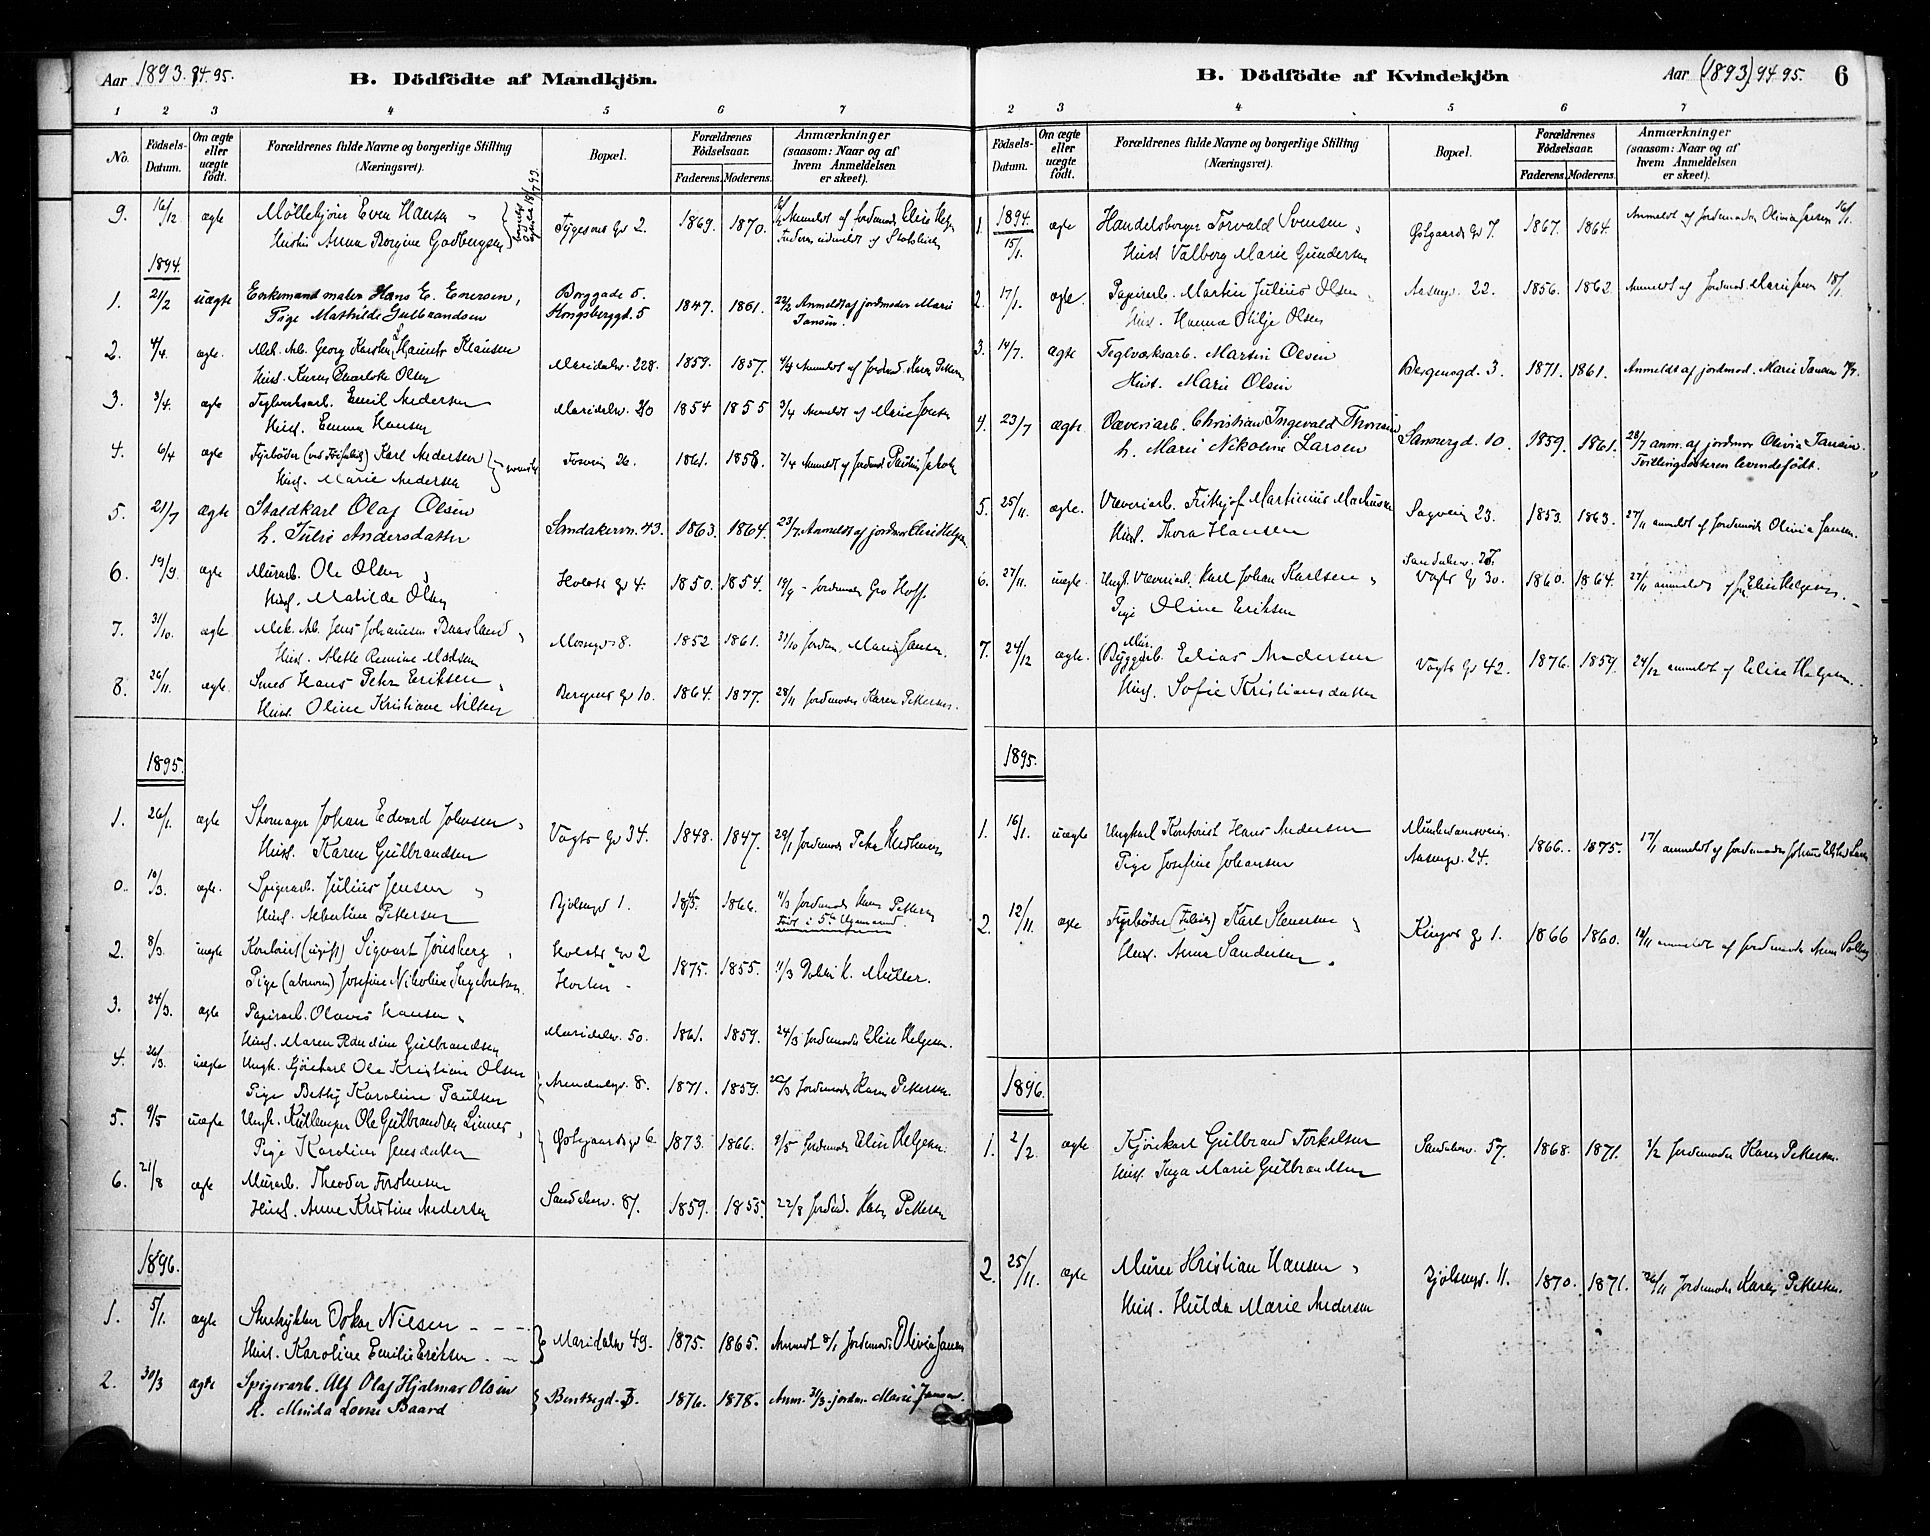 Aar 1893. 94. 95.
B. Dödfödte af Mandkjön.
1 2 3 4 5 6 7
No.
Födsels-Datum.
Om ægte eller uægte födt.
Forældrenes fulde Navne og borgerlige Stilling (Næringsvei).
Bopæl.
Forældrenes Födselsaar.
Faderens. Moderens.
Anmærkninger (saasom: Naar og af hvem Anmeldelsen er skeet).
9. 16/12 ægte Möllekjörer Even Hansen Tygesons Gd 2 1869. 1870. Anmeldt af Jordemoder Elise Helgesen
Hustru Anna Borgine Godbergsen Faderen udmeldt af Statskirken
1894.
1. 21/2 uægte Enkemand maler Hans E. Enersen, Borggade 5. 1847. 1861. 22/2 Anmeldt af jordmoder Marie
Pige Mathilde Gulbrandsen Kongsberggd. 5 Jansen.
2. 4/4. ægte. Mek. Arb. Georg Karsten Hauritz Klausen Maridalsv. 228. 1859. 1857. 4/4 Anmeldt af Jordmod. Karen Pettersen
Hust. Karen Charlotte Olsen
3. 3/4. ægte Teglverksarb. Emil Andersen Maridalsv. 20 1854 1855 3/4 Anmeldt af Marie Jansen
Hust. Emma Hansen
4. 6/4 ægte Fyrböder Karl Andersen Fosvein 26. 1861. 1858. 7/4 Anmeldt af Jordmod.
Hust. Marie Andersen
5. 21/7 ægte Staldkarl Olaf Olsen Sandakerv. 43. 1863. 1864. 23/7. Anmeldt af jordmor Elise Helgesen.
h. Julie Andersdatter
6. 19/9. ægte Murarb. Ole Olsen Holsts gd 4. 1850. 1854. 19/9 - Jordemoder Gro Hoff.
Hust. Matilde Olsen
7. 31/10. ægte Mek. Arb. Jens Johansen Baasland, Mossgd 8. 1852 1861. 31/10 Jordm. Marie Jansen.
Hust. Mette Remine Madsen
8. 26/11. ægte. Smed Hans Peter Eriksen, Bergens gd 10. 1864. 1877. 28/11 Jordemoder Karen Pettersen.
Hust. Oline Kristiane Nilsen
1895.
1. 26/1. ægte Skomager Johan Edvard Johnsen, Vogts Gd 34. 1848. 1847. 29/1 Jordemoder
Hust. Karen Gulbrandsen
0. 10/3. ægte. Spigerarb. Julius Jensen Bjölsengd 1. 1845. 1866. 11/3 Jordemoder Karen Pettersen
Hust. Albertine Pettersen Födt i 5te Maaned.
2. 8/3. uægte Kontorist (ugift) Sigvart Jonsberg, Holsts gd 2 1875. 1855. 11/3 Doktor K. Müller.
Pige Josefine Nikoline Ingebretsen. Horten -
3. 24/3. ægte Papirarb. Olaves Hansen Maridalsv. 50. 1861. 1859. 24/3 Jordemoder Elise Helgesen.
Hust. Maren Randine Gulbrandsen
4. 26/3. uægte Ungk. Kjörekarl Ole Kristian Olsen Arendalsgd. 8. 1871. 1859. 26/3 Jordemoder Karen Pettersen.
Pige Betty Karoline Paulsen
5. 9/5 uægte Ungk. Ole Gulbrandsen Linnes, Östgaardsgd 6. 1873. 1866. 9/5 Jordemoder Elise Helgesen.
Pige Karoline Jensdatter
6. 21/8 ægte Murarb. Theodor Torstensen Sandakerv. 81. 1859. 1855. 22/8 Jordmd. Karen Pettersen
Hust. Anne Kristine Andersen
1896.
1. 5/1. ægte Oskar Nilsen - - - Maridalsv 49. 1875. 1865. Anmeldt 8/1 Jordemoder Olivia Jansen
Hust. Karoline Emilie Eriksen. -
2. 30/3 ægte Spigerarb. Alf Olaf Hjalmar Olsen Bentsegd. 3. 1876. 1878. Anm. 31/3. jordm. Marie Jansen.
H. Minda Lovise Baard
B. Dödfödte af Kvindekjön
Aar (1893) 94. 95.
6
2 3 4 5 6 7
Födsels-Datum.
Om ægte eller uægte födt.
Forældrenes fulde Navne og borgerlige Stilling (Næringsvei).
Bopæl.
Forældrenes Födselsaar.
Faderens. Moderens.
Anmærkninger (saasom: Naar og af hvem Anmeldelsen er skeet).
1894.
1. 15/1. ægte Handelsborger Torvald Svensen, Östgaards Gd 7. 1867. 1864. Anmeldt af Jordemoder Olivia Jansen 16/1.
Hust Valborg Marie Gundersen
2. 17/1. ægte. Papirarb. Martin Julius Olsen Aasengd. 22. 1856. 1862. Anmeldt af Jordmod. Marie Jansen 18/1.
Hust. Hanna Olsen
3. 14/7. ægte Teglværksarb. Martin Olsen Bergensgd. 3. 1871. 1861. Anmeldt af jordmod. Marie Jansen
Hust. Marie Olsen
4. 23/7 ægte. Væveriarb. Christian Ingevald Thoresen Sannergd. 10. 1859. 1861. 28/7 anm. af jordmor Olivia Jansen.
h. Marie Nikoline Larsen Tvillingsösteren levendefödt.
5. 25/11. ægte. Væveriarb. Frithjof Martinius Markussen Sagvein 23. 1853. 1863. 27/11 anmeldt af Jordemoder Olivia Jansen.
Hust. Thora Hansen
6. 27/11. uægte. Ungk. Væveriarb. Karl Johan Karlsen, Vogts Gd 30. 1860. 1864. 27/11 anmeldt af Elise Helgesen.
Pige Oline Eriksen
7. 24/12 ægte. Elias Andersen Vogts Gd 42. 1876. 1859. 24/12 anmeldt af Elise Helgesen.
Hust. Sofie Kristiansdatter
1895.
1. 16/1. uægte Ungkarl Kontorist Hans Andersen 1866. 1875. 17/1 anmeldt af Jordemoder
Pige Josefine Johansen Aasengd. 24.
2. 12/11. ægte Fyrböder Karl Stenersen Kingos gd 1. 1866 1860. anmeldt af Jordemoder Anna
Hust. Anna Sandersen
1896.
1. 2/2. ægte Kjörekarl Gulbrand Torkelsen Sandakerv. 57. 1868. 1871. 3/2 Jordemoder Karen Pettersen.
Hust. Inga Marie Gulbrandsen
2. 25/11. ægte Murer Kristian Hansen, Bjölsengd. 11. 1870. 1871. 26/11 Jordemoder Karen Pettersen.
Hust. Hulda Marie Andersen